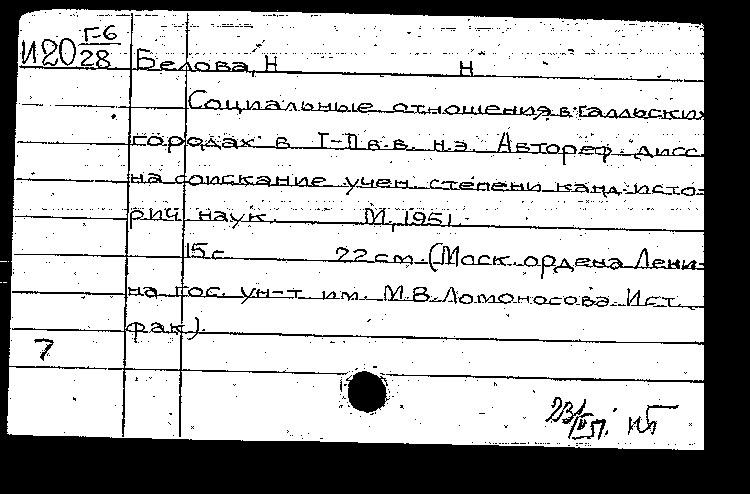 И20 Г-6/28 Белова, Н Н
Социальные отношения в галльских
городах в I-II в.в. н.э. Автореф. дисс.
на соискание учен. степени канд. исто-
рич наук. М, 1951.
15 с 22 см. (Моск. ордена Лени-
на гос. ун-т им. М.В. Ломоносова. Ист.
фак).
7